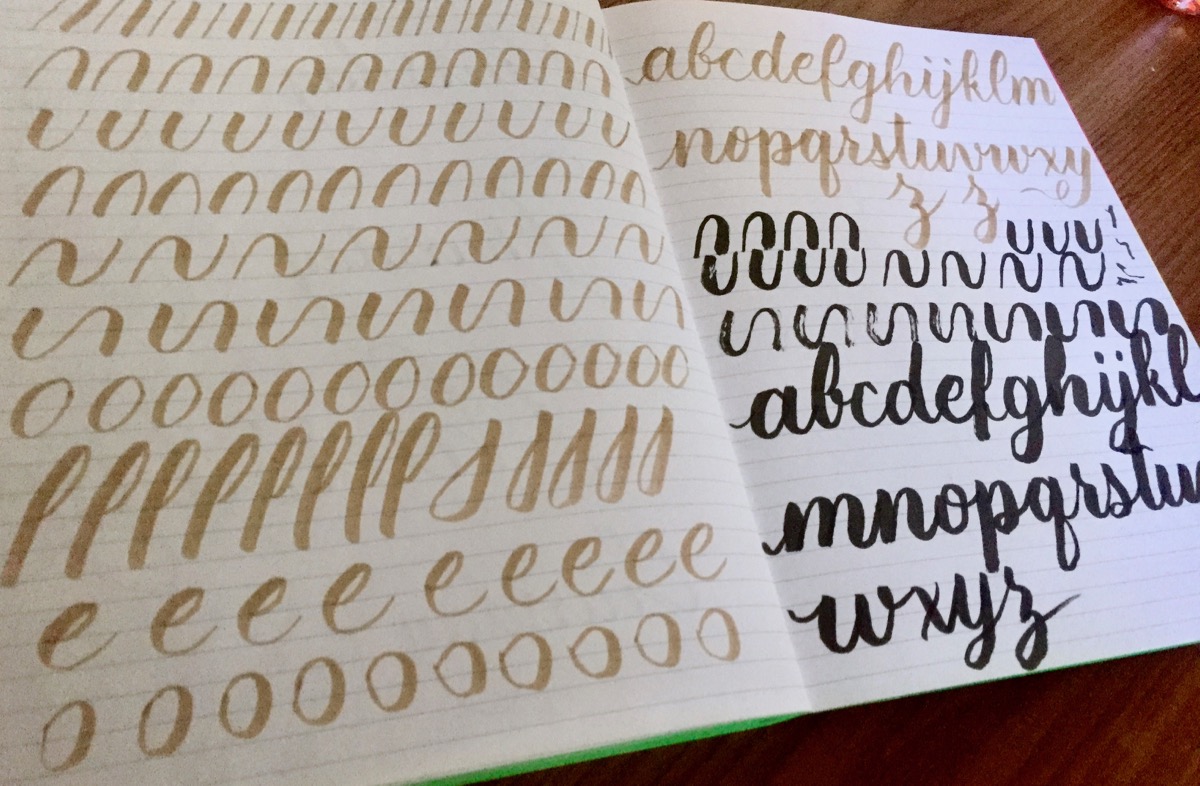 o o o o o o o o o o o o o
e e e e e e e e e
o o o o o o o o o o
abcdefghijklm
nopqrstuvwxy
z z
abcdefghijkl
mnopqrstuv
wxyz